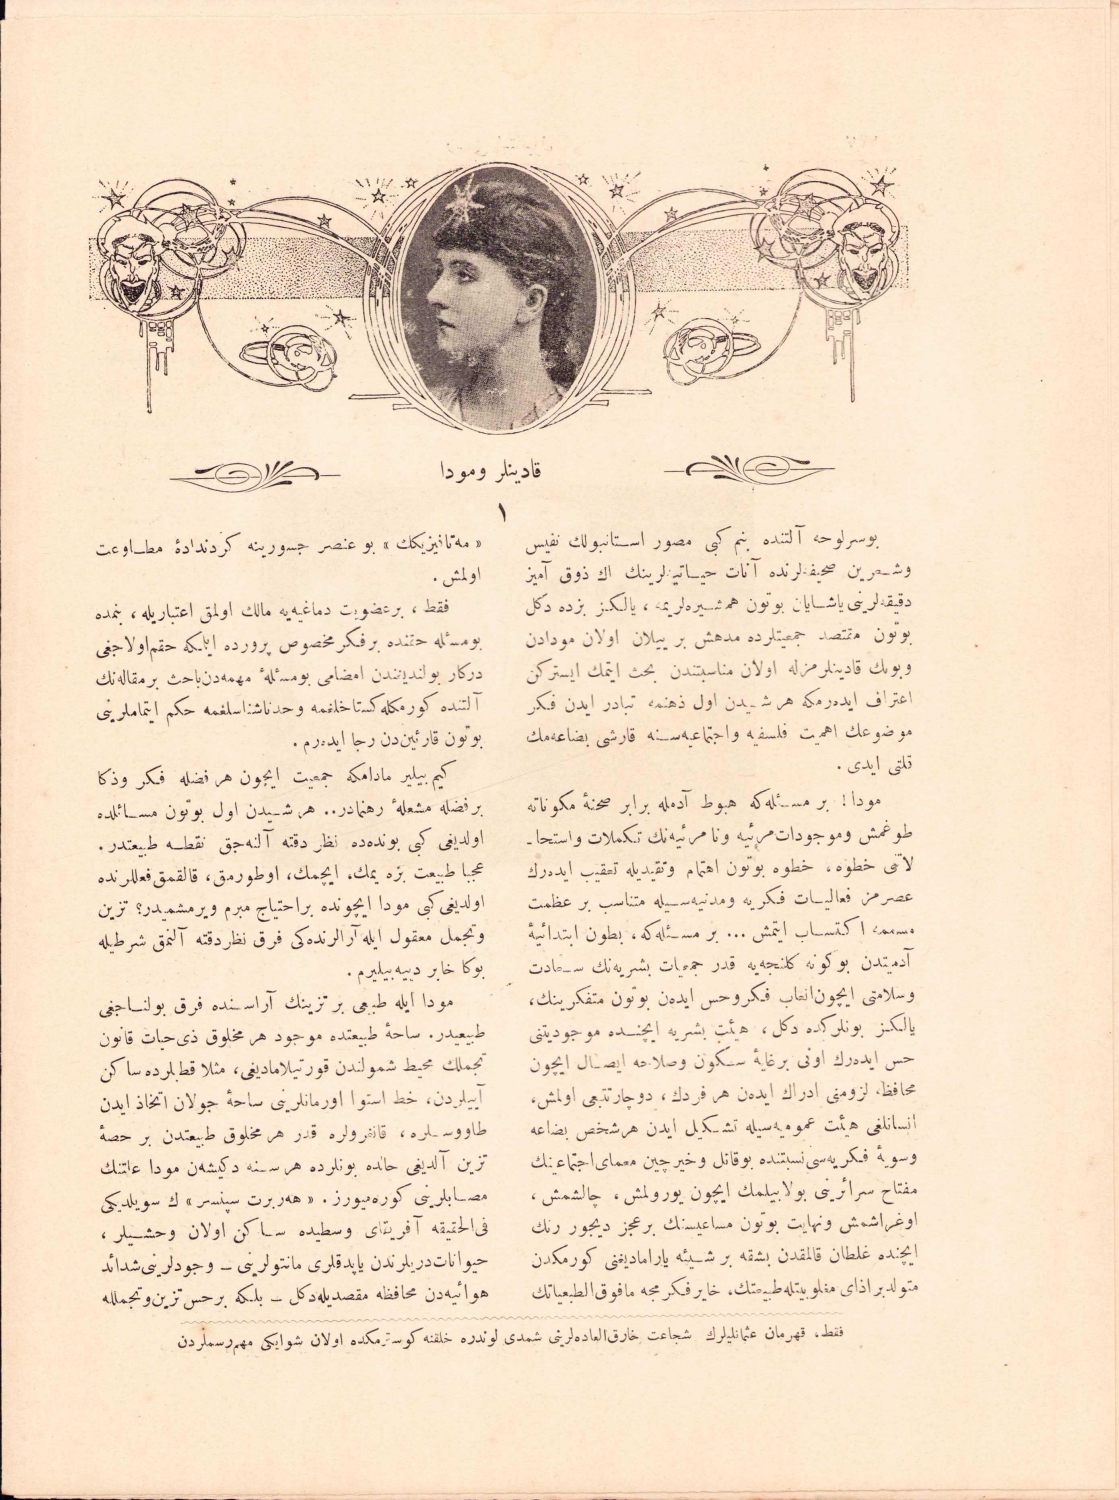 قادينلر و مودا
١
بوسرلوحه آلتنده بنم كبى مصور استانبولك نفيس
وشعرين صحيفه‌لرنده آنات حياتيه‌لرينك اك ذوق آميز
دقيقه‌لرينى ياشايان بوتون همشيره‌لريمه ، يالكز بزده دكل
بوتون متمدن جمعيتلرده مدهش بر ييلان اولان مودادن
وبونك قادينلرمزله اولان مناسبتندن بحث ايتمك ايستركن
اعتراف ايده‌رمكه هر شيدن اول ذهنمه تبادر ايدن فكر
موضوعك اهميت فلسفيه واجتماعيه‌سنه قارشى بضاعه‌مك
قلتى ايدى .
مودا! بر مسئله‌كه هبوط آدمله برابر صحنهٔ مكوناته
طوغمش وموجودات مرئيه ونامرئيه‌نك تكملات واستحا ـ
لاتنى خطوه ، خطوه بوتون اهتمام وتقيديله تعقيب ايده‌رك
عصرمز فعاليات فكريه ومدنيه‌سيله متناسب بر عظمت
اكتساب ايتمش ... بر مسئله‌كه ، بطون ابتدائيهٔ
آدميتدن بوكونه كلنجه‌يه قدر جمعيات بشريه‌نك سعادت
وسلامتى ايچون اتعاب فكر وحس ايدن بوتون متفكرينك ،
يالكز بونلركده دكل ، هيئت بشريه ايچنده موجوديتنى
حس ايده‌رك اونى بر غايهٔ سكون وصلاحه ايصال ايچون
محافظه لزومنى ادراك ايدن هر فردك ، دوچار تتبعى اولمش ،
انسانلغى هيئت عموميه‌سيله تشكيل ايدن هر شخص بضاعه
وسويهٔ فكريه‌سى نسبتنده بوقاتل وخيرچين معماى اجتماعينك
مفتاح سرائرينى بولابيلمك ايچون يورولمش ، چالشمش ،
اوغراشمش ونهايت بوتون مساعيسنك بر عجز ديجور رنك
ايچنده غلطان قالمقدن بشقه بر شيئه ياراماديغنى كورمكدن
متولد بر اذاى مغلوبيتله طبيعتك ، خاير فكرمجه مافوق الطبيعياتك
« مه‌تافيزيكك » بو عنصر جسورينه كردندادهٔ مطاوعت
اولمش .
فقط ، بر عضويت دماغيه‌يه مالك اولمق اعتباريله ، بنمده
بومسئله حقنده بر فكر مخصوص پرورده ايتمكه حقم اولاجغى
دركار بولنديغندن امضامى بومسئلهٔ مهمه‌دن باحث بر مقاله‌نك
آلتنده كورمكله كستاخلغمه وحدناشناسلغمه حكم ايتمه‌لرينى
بوتون قارئين‌دن رجا ايده‌رم .
كيم بيلير مادامكه جمعيت ايچون هر فضله فكر وذكا
بر فضله مشعلهٔ رهنمادر .. هر شيدن اول بوتون مسائلده
اولديغى كبى بونده‌ده نظر دقته آلنه‌جق نقطه طبيعتدر .
عجبا طبيعت بزه يمك ، ايچمك ، اوطورمق ، قالقمق فعللرنده
اولديغى كبى مودا ايچونده بر احتياج مبرم ويرمشميدر؟ تزين
وتجمل معقول ايله آرالرنده‌كى فرق نظر دقته آلنمق شرطيله
بوكا خاير دييه‌بيليرم .
مودا ايله طبيعى بر تزينك آراسنده فرق بولناجغى
طبيعيدر . ساحهٔ طبيعتده موجود هر مخلوق ذى حيات قانون
تجملك محيط شمولندن قورتيلاماديغى ، مثلا قطبلرده ساكن
آييلردن ، خط استوا اورمانلرينى ساحهٔ جولان اتخاذ ايدن
طاووسلره ، قانغرولره قدر هر مخلوق طبيعتدن بر حصهٔ
تزين آلديغى حالده بونلرده هر سنه دكيشن مودا علتنك
مصابلرينى كوره‌ميورز . « هه‌ربرت سپنسر » ك سويلديكى
فى الحقيقه آفريقاى وسطيده ساكن اولان وحشيلر ،
حيوانات دريلرندن ياپدقلرى مانتولرينى ـ وجودلرينى شدائد
هوائيه‌دن محافظه مقصديله دكل ـ بلكه بر حس تزين وتجملله
فقط ، قهرمان عثمانليلرك شجاعت خارق العاده‌لرينى شمدى لوندره خلقنه كوسترمكده اولان شو ايكى مهم رسملردن